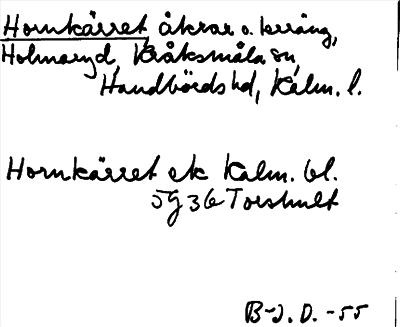 Hornkärret åkrar o. terräng,
Holmaryd, Kråksmåla sn,
Handbörds hd, Kalm. l.
Hornkärret ek Kalm. bl.
5g 36 Torshult
B-J. D. -55